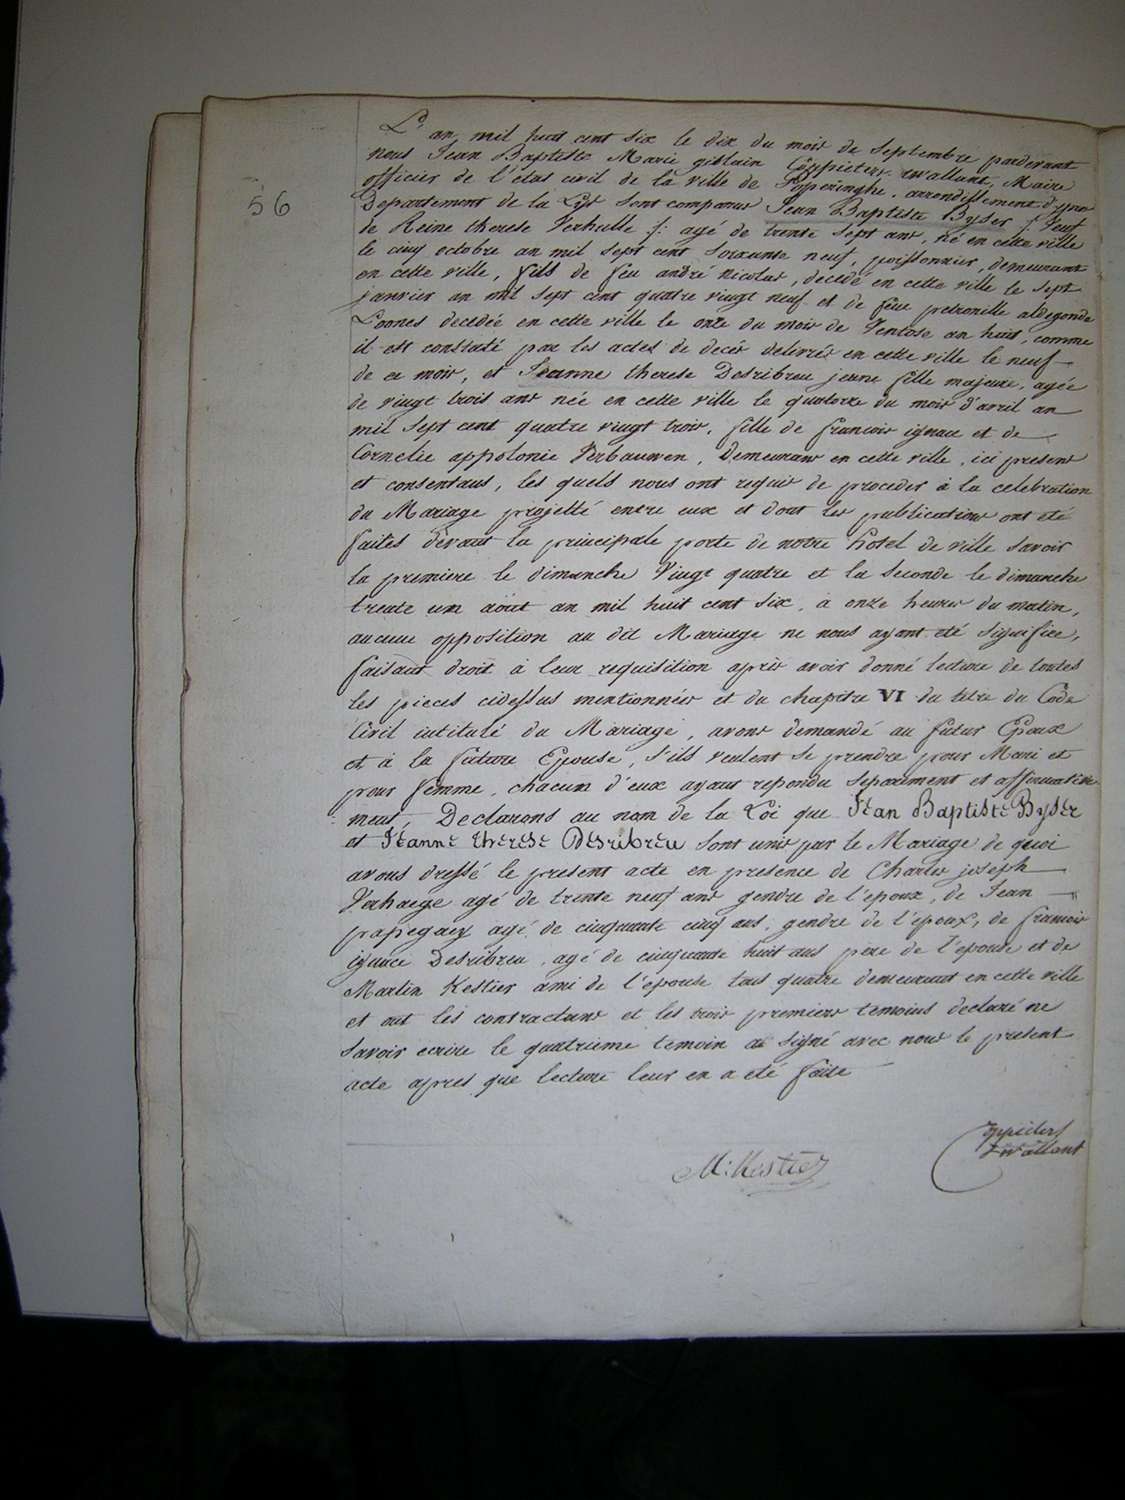 56
L'an mil huit cent six le dix du mois de Septembre pardevant
nous Jean Baptiste Marie gislain Coppieters twallant, Maire
officier de l'etat civil de la ville de Poperinghe, arrondissement d'ypres
Departement de la Lys sont comparus Jean Baptiste Byser /: Veuf
de Reine therese Verhulle :/ agé de trente sept ans, né en cette ville
le cinq octobre an mil sept cent soixante neuf, poissonnier, demeurant
en cette ville, fils de feu andré nicolas, decedé en cette ville le sept
janvier an mil sept cent quatre vingt neuf et de feue petronille aldegonde
Loones decedée en cette ville le onze du mois de Ventose an huit, comme
il est constaté par les actes de decès delivrés en cette ville le neuf
de ce mois, et Jeanne therese Desribreu jeune fille majeure, agée
de vingt trois ans née en cette ville le quatorze du mois d'avril an
mil sept cent quatre vingt trois, fille de francois ignace et de
Cornelie appolonie Verbauwen, demeurans en cette ville, ici presens
et consentans, les quels nous ont requis de proceder à la celebration
du Mariage projetté entre eux et dont les publications ont eté
faites devant la principale porte de notre hotel de ville savoir
la premiere le dimanche Vingt quatre et la seconde le dimanche
trente un aout an mil huit cent six, à onze heures du matin,
aucune opposition au dit Mariage ne nous ayant eté signifiée,
faisant droit à leur requisition après avoir donné lecture de toutes
les pieces cidessus mentionnées et du chapitre VI du titre du Code
Civil intitulé du Mariage, avons demandé au futur Epoux
et à la future Epouse, s'ils veulent se prendre pour Mari et
pour femme, chacun d'eux ayant repondu separement et affirmative-
ment, Declarons au nom de la Loi que Jean Baptiste Byser
et Jeanne therese Desribreu sont unis par le Mariage de quoi
avons dressé le present acte en presence de Charles joseph
Verhaege agé de trente neuf ans gendre de l'epoux, de Jean
papegaey agé de cinquante cinq ans, gendre de l'epoux, de francois
ignace Desribreu, agé de cinquante huit ans pere de l'epouse et de
Martin Kestier ami de l'epouse tous quatre demeurant en cette ville
et ont les contractans et les trois premiers temoins declaré ne
savoir ecrire le quatrieme temoin a signé avec nous le present
acte apres que lecture leur en a eté faite
M: Kestier
Coppieters
twallant